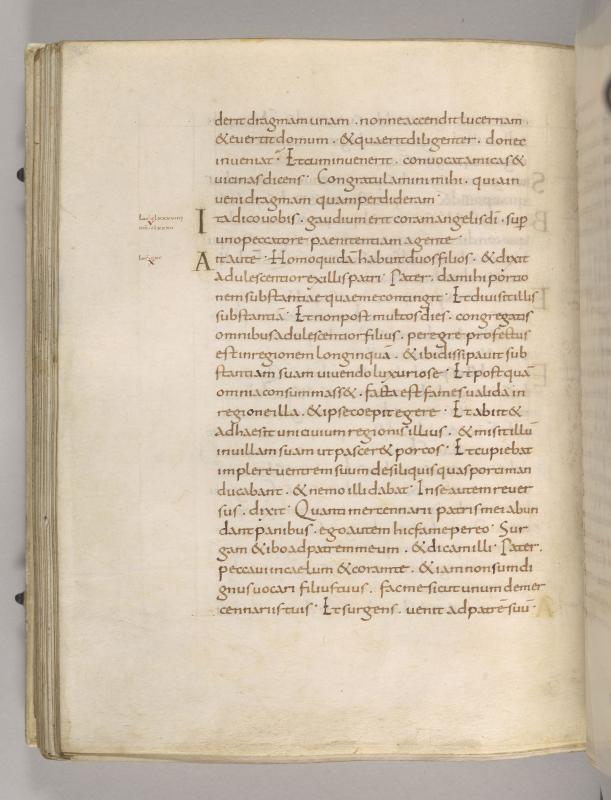 derit dragmam unam · nonne accendit lucernam
& euertit domum · & quaerit diligenter · donec
inueniat · Et cum inuenerit · conuocat amicas &
uicinas dicens · Congratulamini mihi · quia in
ueni dragmam quam perdideram ·
Ita dico uobis · gaudium erit coram angelis dī · sup̄
uno peccatore paenitentiam agente ·
Ait autē · Homo quidā habuit duos filios · & dixit
adulescentior ex illis patri · Pater · da mihi portio
nem substantiae quae me contingit · Et diuisit illis
substantiā · Et non post multos dies · congregatis
omnibus adulescentior filius · peregre profectus
est in regionem longinquā · & ibi dissipauit sub
stantiam suam uiuendo luxuriose · Et postquā
omnia consummass& · facta est fames ualida in
regione illa · & ipse coepit egere · Et abiit &
adhaesit uni ciuium regionis illius · & misit illū
in uillam suam ut pascer& porcos · Et cupiebat
implere uentrem suum de siliquis quas porci man
ducabant · & nemo illi dabat · In se autem reuer
sus · dixit · Quanti mercennarii patris mei abun
dant panibus · ego autem hic fame pereo · Sur
gam & ibo ad patrem meum · & dicam illi · Pater ·
peccaui in caelum & coram te · & iam non sum di
gnus uocari filius tuus · fac me sicut unum de mer
cennariis tuis · Et surgens · uenit ad patrē suū ·